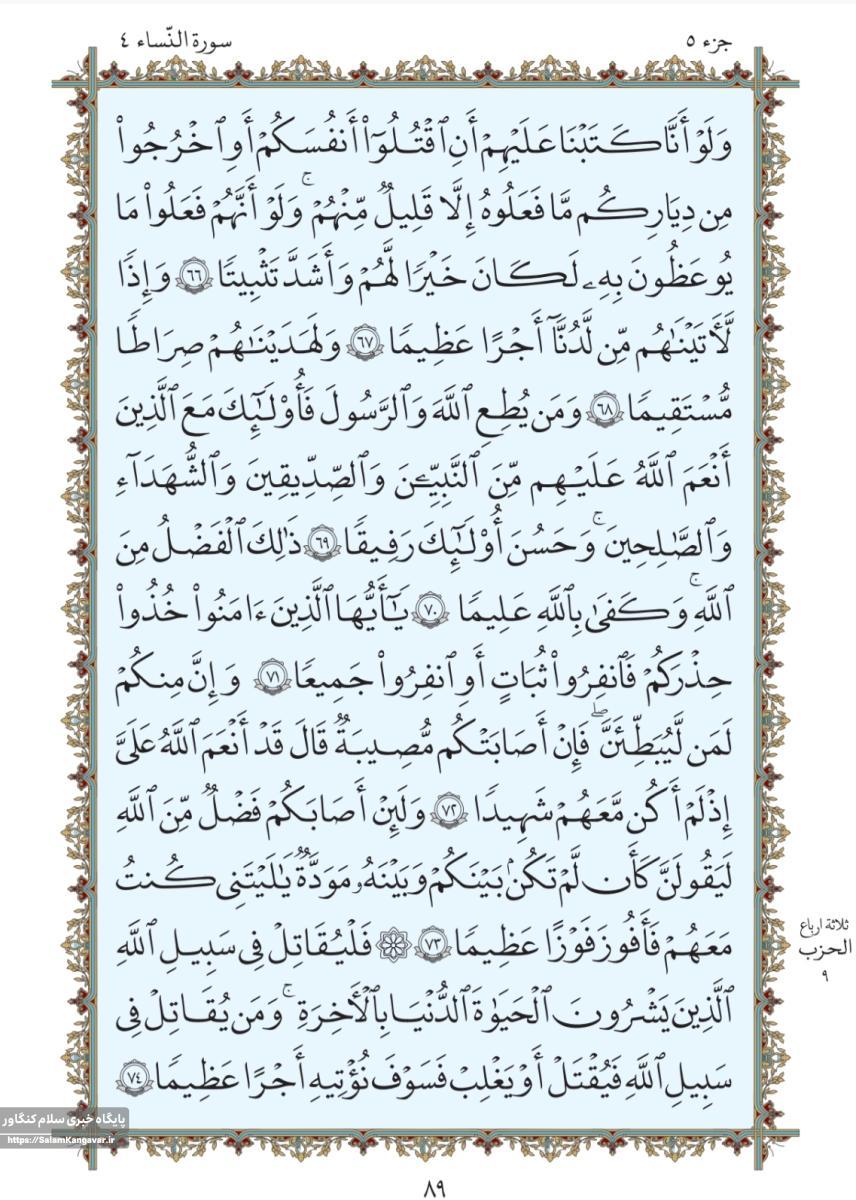 سورة النّساء ٤
جزء ٥
وَلَوْ أَنَّا كَتَبْنَا عَلَيْهِمْ أَنِ ٱقْتُلُوٓا۟ أَنفُسَكُمْ أَوِ ٱخْرُجُوا۟
مِن دِيَارِكُم مَّا فَعَلُوهُ إِلَّا قَلِيلٌ مِّنْهُمْ ۚ وَلَوْ أَنَّهُمْ فَعَلُوا۟ مَا
يُوعَظُونَ بِهِۦ لَكَانَ خَيْرًا لَّهُمْ وَأَشَدَّ تَثْبِيتًا ٦٦ وَإِذًا
لَّءَاتَيْنَٰهُم مِّن لَّدُنَّآ أَجْرًا عَظِيمًا ٦٧ وَلَهَدَيْنَٰهُمْ صِرَٰطًا
مُّسْتَقِيمًا ٦٨ وَمَن يُطِعِ ٱللَّهَ وَٱلرَّسُولَ فَأُو۟لَٰٓئِكَ مَعَ ٱلَّذِينَ
أَنْعَمَ ٱللَّهُ عَلَيْهِم مِّنَ ٱلنَّبِيِّـۧنَ وَٱلصِّدِّيقِينَ وَٱلشُّهَدَآءِ
وَٱلصَّٰلِحِينَ ۚ وَحَسُنَ أُو۟لَٰٓئِكَ رَفِيقًا ٦٩ ذَٰلِكَ ٱلْفَضْلُ مِنَ
ٱللَّهِ ۚ وَكَفَىٰ بِٱللَّهِ عَلِيمًا ٧٠ يَٰٓأَيُّهَا ٱلَّذِينَ ءَامَنُوا۟ خُذُوا۟
حِذْرَكُمْ فَٱنفِرُوا۟ ثُبَاتٍ أَوِ ٱنفِرُوا۟ جَمِيعًا ٧١ وَإِنَّ مِنكُمْ
لَمَن لَّيُبَطِّئَنَّ ۖ فَإِنْ أَصَٰبَتْكُم مُّصِيبَةٌ قَالَ قَدْ أَنْعَمَ ٱللَّهُ عَلَىَّ
إِذْ لَمْ أَكُن مَّعَهُمْ شَهِيدًا ٧٢ وَلَئِنْ أَصَٰبَكُمْ فَضْلٌ مِّنَ ٱللَّهِ
لَيَقُولَنَّ كَأَن لَّمْ تَكُنۢ بَيْنَكُمْ وَبَيْنَهُۥ مَوَدَّةٌ يَٰلَيْتَنِى كُنتُ
مَعَهُمْ فَأَفُوزَ فَوْزًا عَظِيمًا ٧٣ ۞ فَلْيُقَٰتِلْ فِى سَبِيلِ ٱللَّهِ
ٱلَّذِينَ يَشْرُونَ ٱلْحَيَوٰةَ ٱلدُّنْيَا بِٱلْءَاخِرَةِ ۚ وَمَن يُقَٰتِلْ فِى
سَبِيلِ ٱللَّهِ فَيُقْتَلْ أَوْ يَغْلِبْ فَسَوْفَ نُؤْتِيهِ أَجْرًا عَظِيمًا ٧٤
ثلاثة ارباع
الحزب
٩
پایگاه خبری سلام کنگاور
https://SalamKangavar.ir
٨٩